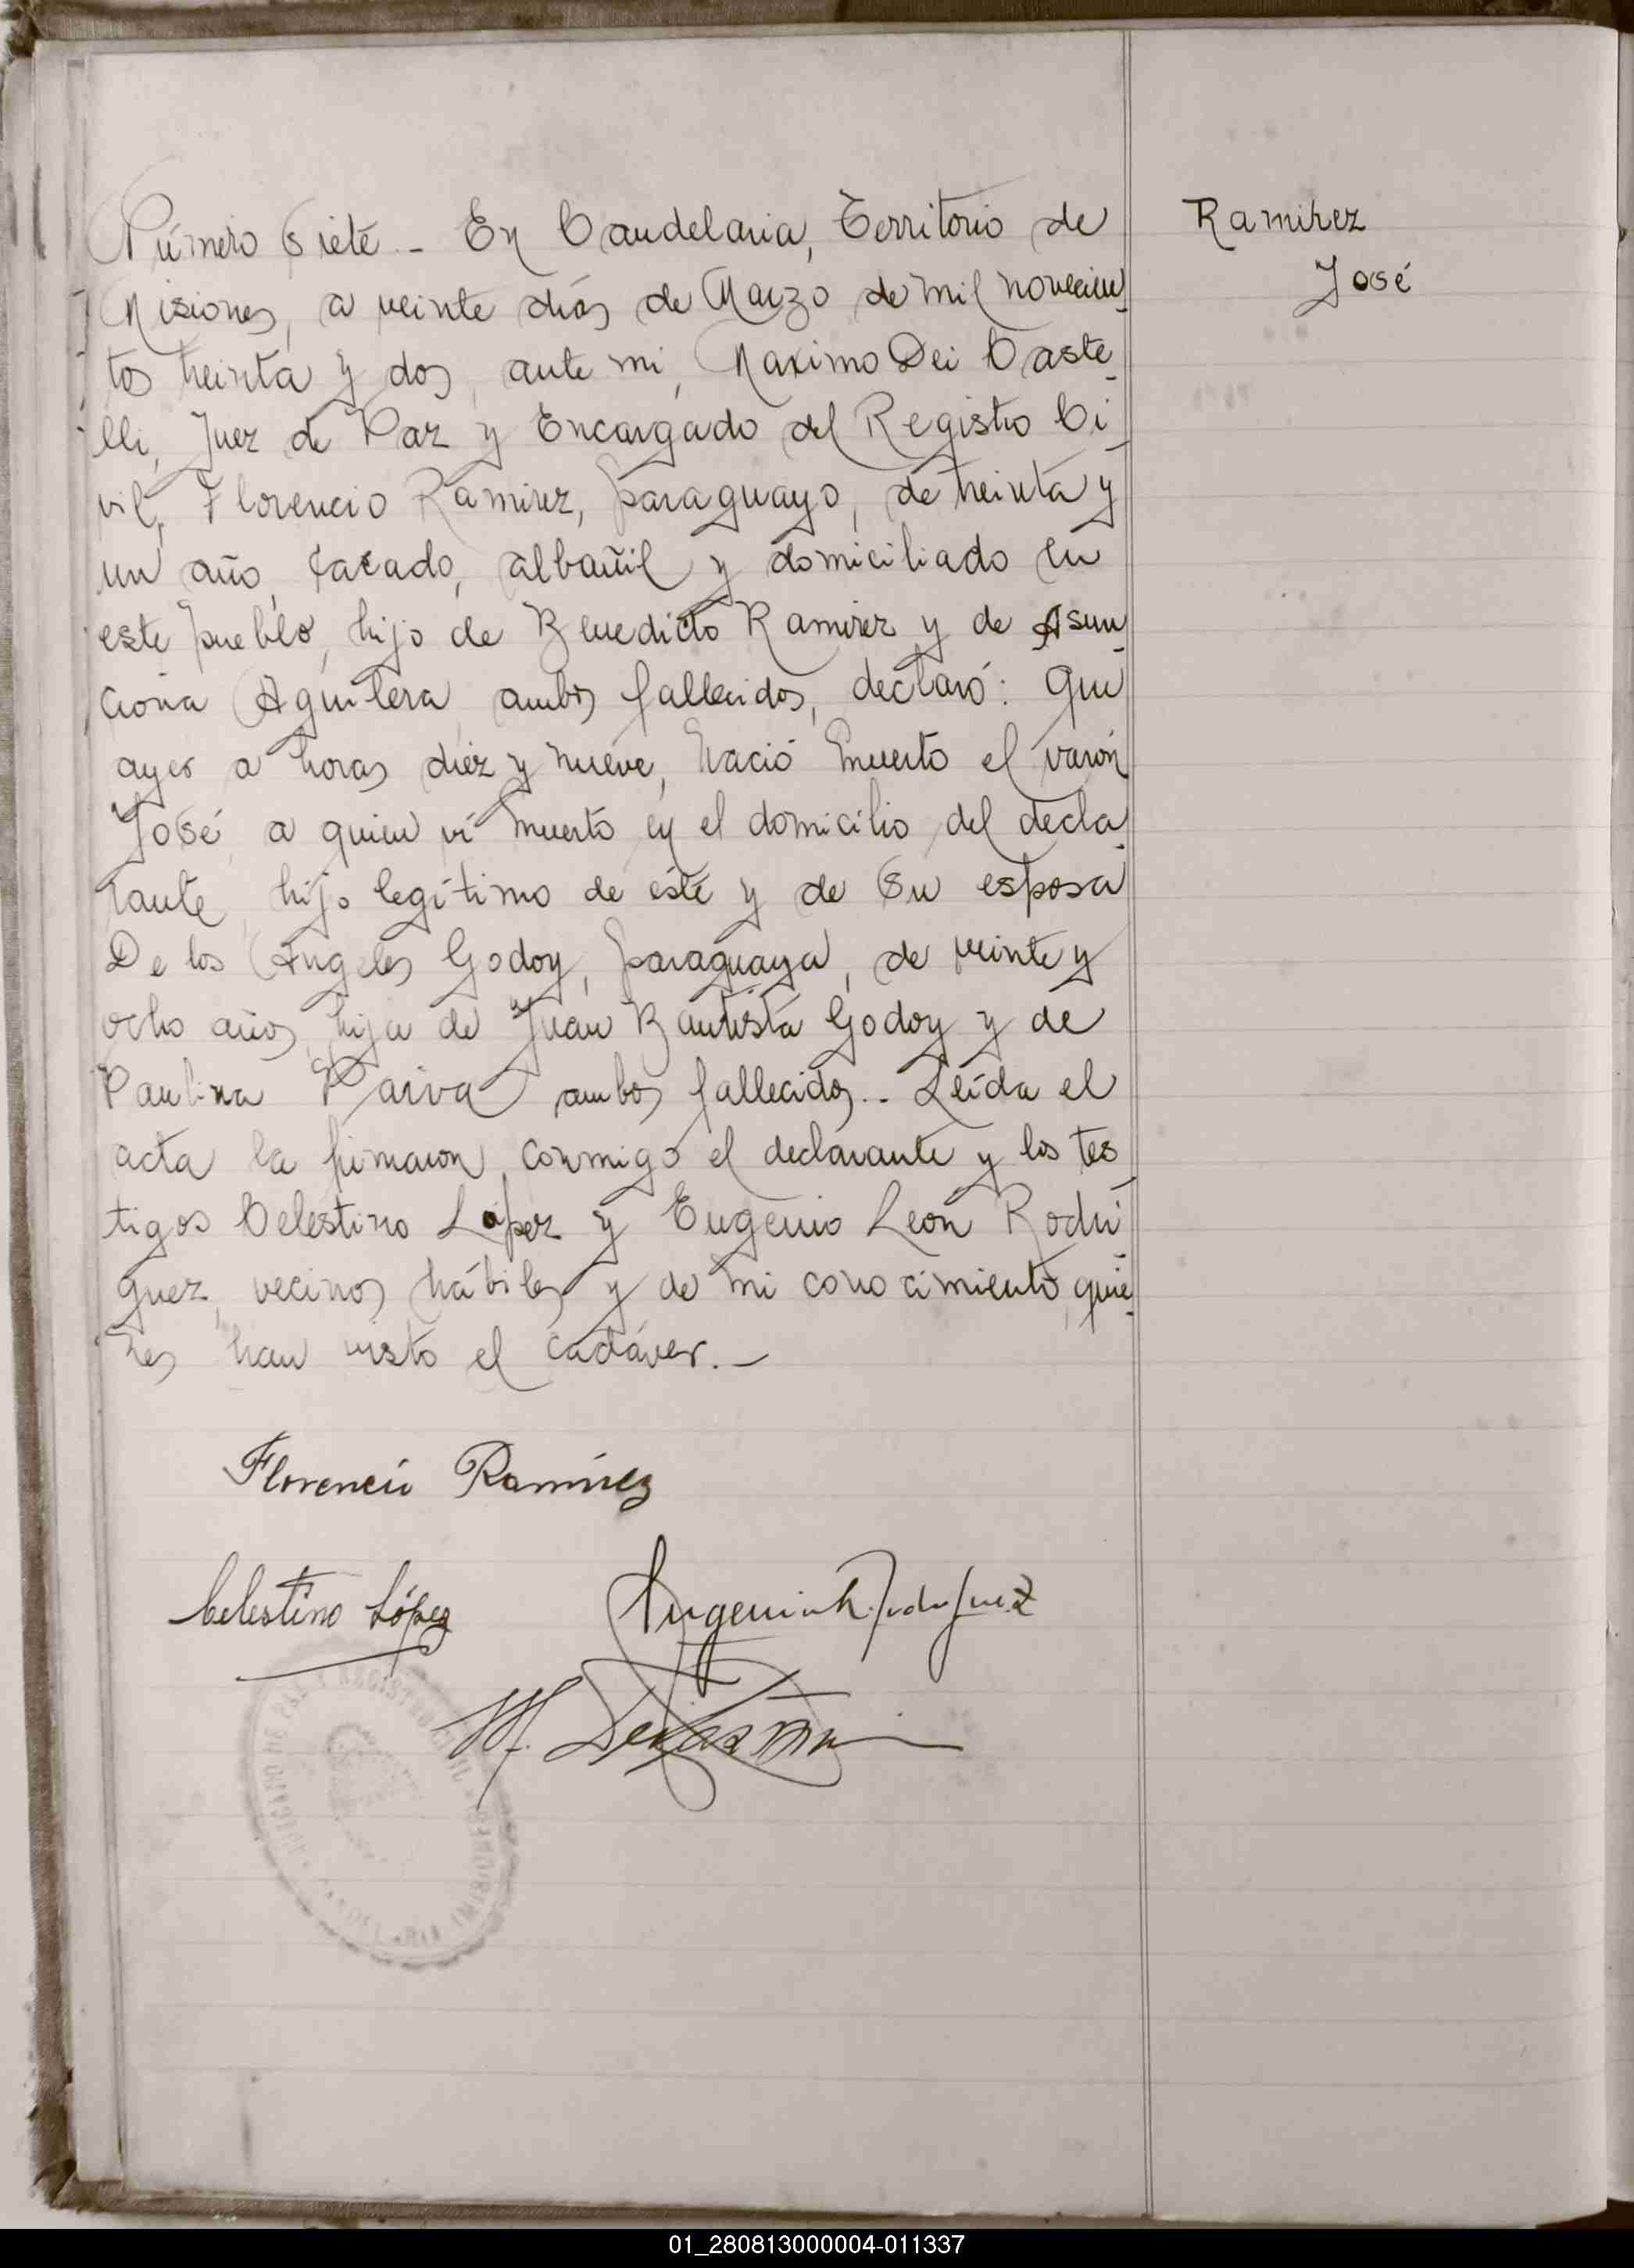 Número siete.- En Candelaria, Territorio de
Misiones, a veinte días de Marzo de mil novecien
tos treinta y dos, ante mi, Maximo Dei Caste
lli, Juez de Paz y Encargado del Registro Ci
vil, Florencio Ramirez, paraguayo, de treinta y
un año, casado, albañil y domiciliado en
este pueblo, hijo de Benedicto Ramirez y de Asun
ciona Aguilera ambos fallecidos, declaró: Que
ayer a horas diez y nueve, nació muerto el varón
José, a quien ví muerto en el domicilio del decla
rante, hijo legítimo de éste y de su esposa
De los Angeles Godoy, paraguaya, de veinte y
ocho años, hija de Juan Bautista Godoy y de
Paulina Paiva ambos fallecidos.- Leída el
acta la firmaron conmigo el declarante y los tes
tigos Celestino López y Eugenio León Rodrí
guez, vecinos hábiles y de mi conocimiento, quie
nes han visto el cadáver.-
Ramirez
José
Florencio Ramírez
Celestino López
Eugenio L. Rodríguez
M. Dei Castelli
01_280813000004-011337